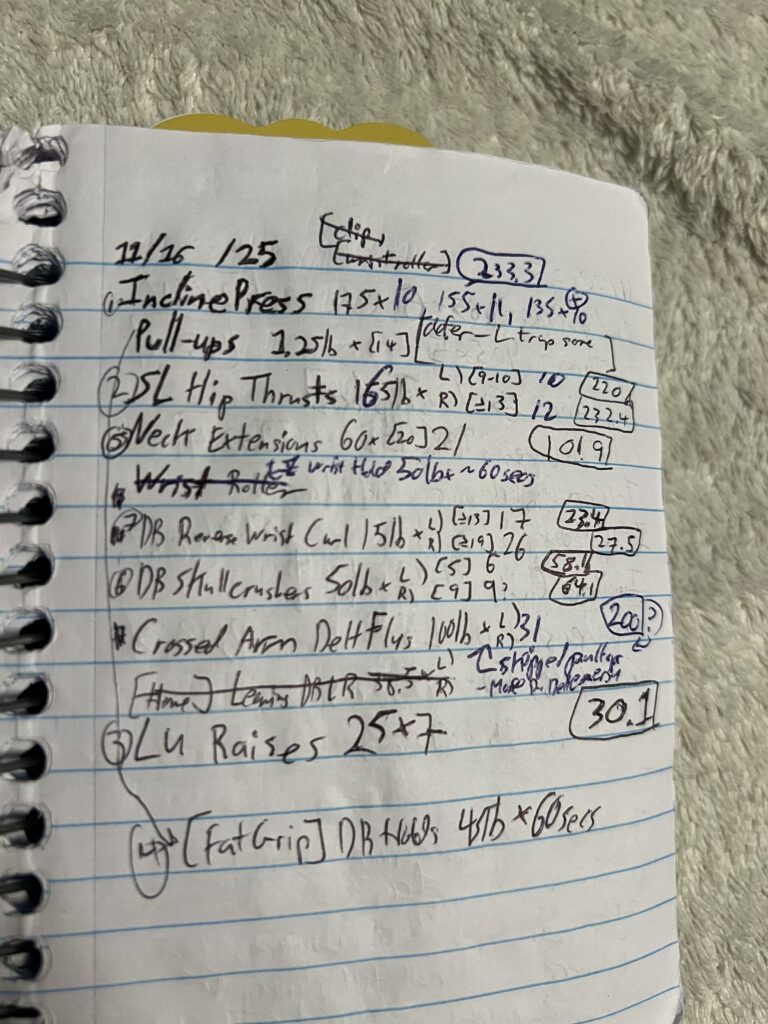 11/16 /25 [clip,
[wrist roller] 233.3
① Incline Press 175×10 155×11, 135×
Pull-ups 1.25lb × [14] [defer - L trap sore]
② SL Hip Thrusts 165lb × L) [9-10] 10 220
R) [≥13] 12 232.4
⑤ Neck Extensions 60× [20] 21 101.9
Wrist Roller Wrist Hold 50lb× ~60secs
⑦ DB Reverse Wrist Curl 15lb × L) [≥13] 17 23.4
R) [≥19] 26 27.5
⑥ DB Skullcrushers 50lb × L) [5] 6 58.1
R) [9] 9? 64.1
Crossed Arm Delt Flys 100lb × L) R) 31 200?
↑ skipped pullups
[Home] Leaning DB LR 38.5 × L) R) - More R. Delt
③ LU Raises 25×7 30.1
④ [Fat Grip] DB Holds 45lb × 60secs